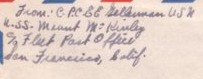 From: C.P.C. E.E. Gelerman U S N
U.S.S. Mount McKinley
c/o Fleet Post Office
San Francisco, Calif.